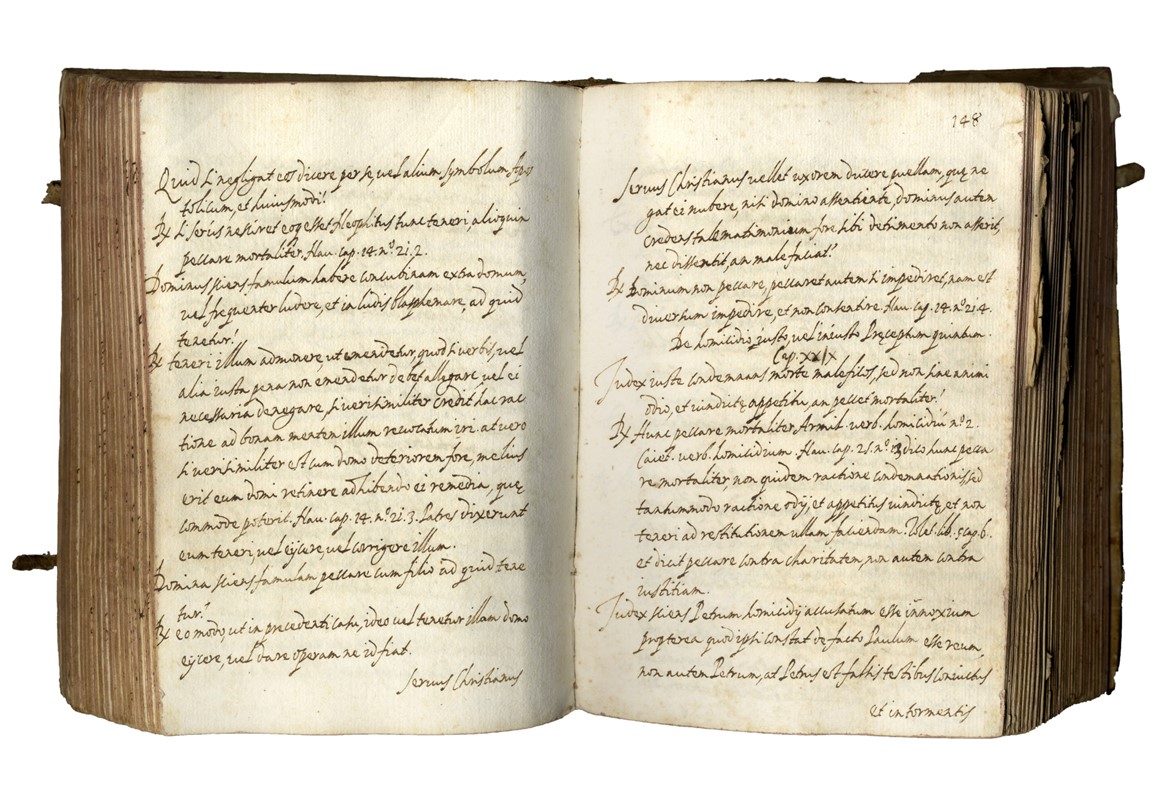 Quid si negligat eos dicere per se, vel alium symbolum Apos
tolicum, et huiusmodi?
Rx si servus nesciret eo quod esset Neophitus tunc teneri, alioquin
peccare mortaliter. Nau. cap. 14. nº 21. 2.
Dominus sciens famulum habere concubinam extra domum,
vel frequenter ludere, et in ludis blasphemare, ad quid
tenetur?
Rx teneri illum admonere, ut emendetur, quod si verbis, vel
alia iusta pena non emendetur debet allegare vel ei
necessaria denegare si verisimiliter credit hac rac
tione ad bonam mentem illum revocatum iri. at vero
si verisimiliter est cum domo deteriorem fore, melius
erit eum domi retinere adhibendo ei remedia, quę
commode poterit. Nau. cap. 14. nº 21. 3. Patres dixerunt
eum teneri vel eijcere, vel corrigere illum.
Domina sciens famulam peccare cum filio ad quid tene
tur?
Rx eo modo, ut in precedenti casu, ideo vel tenetur illam domo
eijcere, vel dare operam ne id fiat.
servus Christianus
148
Servus Christianus vellet uxorem ducere puellam, quę ne
gat ei nubere, nisi domino assentiente, dominus autem
credens tale matrimonium fore sibi detrimento non asserit,
nec dissentit, an male faciat?
Rx Dominum non peccare, peccaret autem si impediret, nam est
diversum impedire, et non consentire. Nau. cap. 14. nº 21. 4.
De homicidio iusto, vel iniusto Pręceptum quintum.
Cap. XXIX
Judex iuste condemnans morte maleficos, sed non sine animi
odio, et vindictę appetitu, an peccet mortaliter?
Rx Hunc peccare mortaliter Armil. verb. homicidiũ nº 2.
Caiet. verb. homicidium. Nau. cap. 25. nº 13 dico hunc pecca
re mortaliter, non quidem ratione condemnationis sed
tantummodo ratione odij, et appetitus vindictę, et non
teneri ad restitutionem ullam faciendam. Tolet. lib. 5 cap. 6.
et dicit peccare contra charitatem, non autem contra
iustitiam.
Judex sciens Petrum homicidij accusatum esse innoxium
propterea quod ipsi constat de facto Paulum esse reum,
non autem Petrum, at Petrus est falsis testibus convictus
et in tormentis